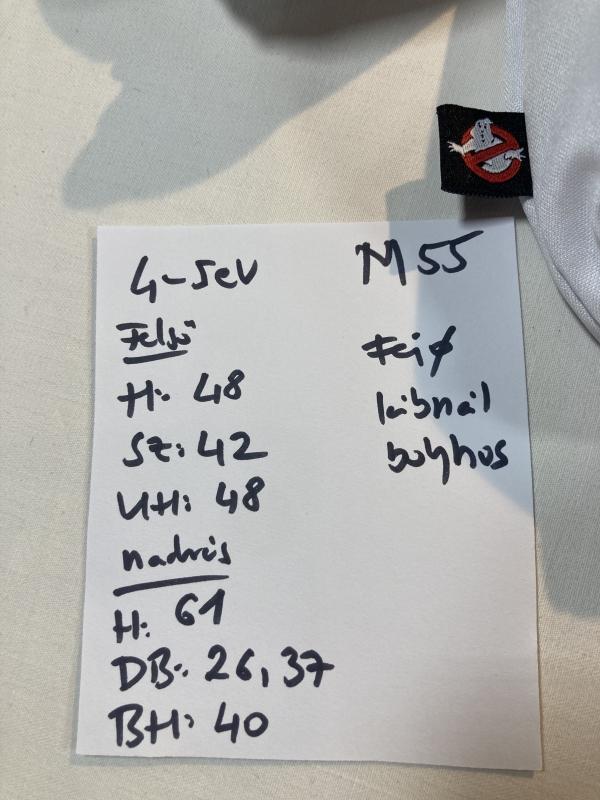 4-5ev
M55
Felső
H: 48
SZ: 42
UH: 48
nadrás
H: 61
DB: 26, 37
BH: 40
Fej ∅
lábnál
bolyhos